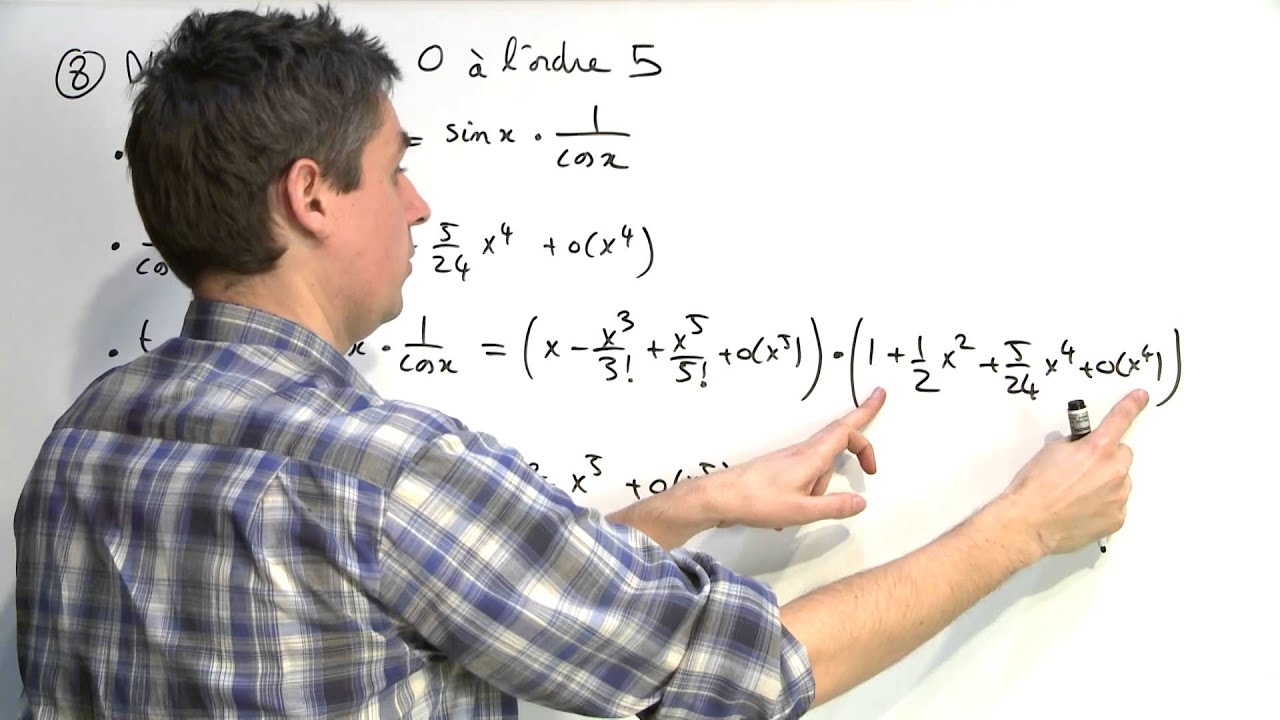 ⑧ 0 à l'ordre 5
• = sin x · 1/cos x
• 5/24 x⁴ + o(x⁴)
• t · 1/cos x = (x - x³/3! + x⁵/5! + o(x⁵)) · (1 + 1/2 x² + 5/24 x⁴ + o(x⁴))
x⁵ + o(x⁵)